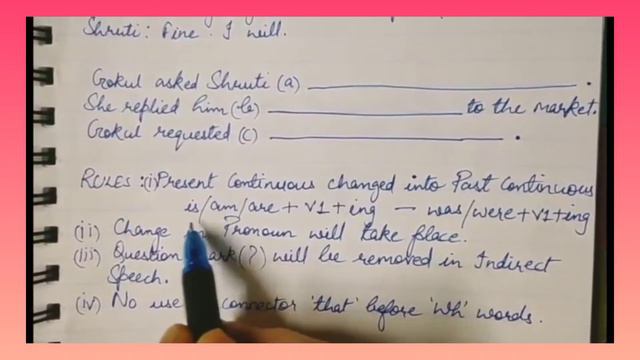 Shruti: Fine. I will.
Gokul asked Shruti (a) ______ .
She replied him (b) ______ to the market.
Gokul requested (c) ______ .
RULES: (i) Present Continuous changed into Past Continuous
is/am/are + V1 + ing — was/were + V1 + ing
(ii) Change in Pronoun will take place.
(iii) Question (?) will be removed in Indirect
Speech.
(iv) No use connector 'that' before 'Wh' words.